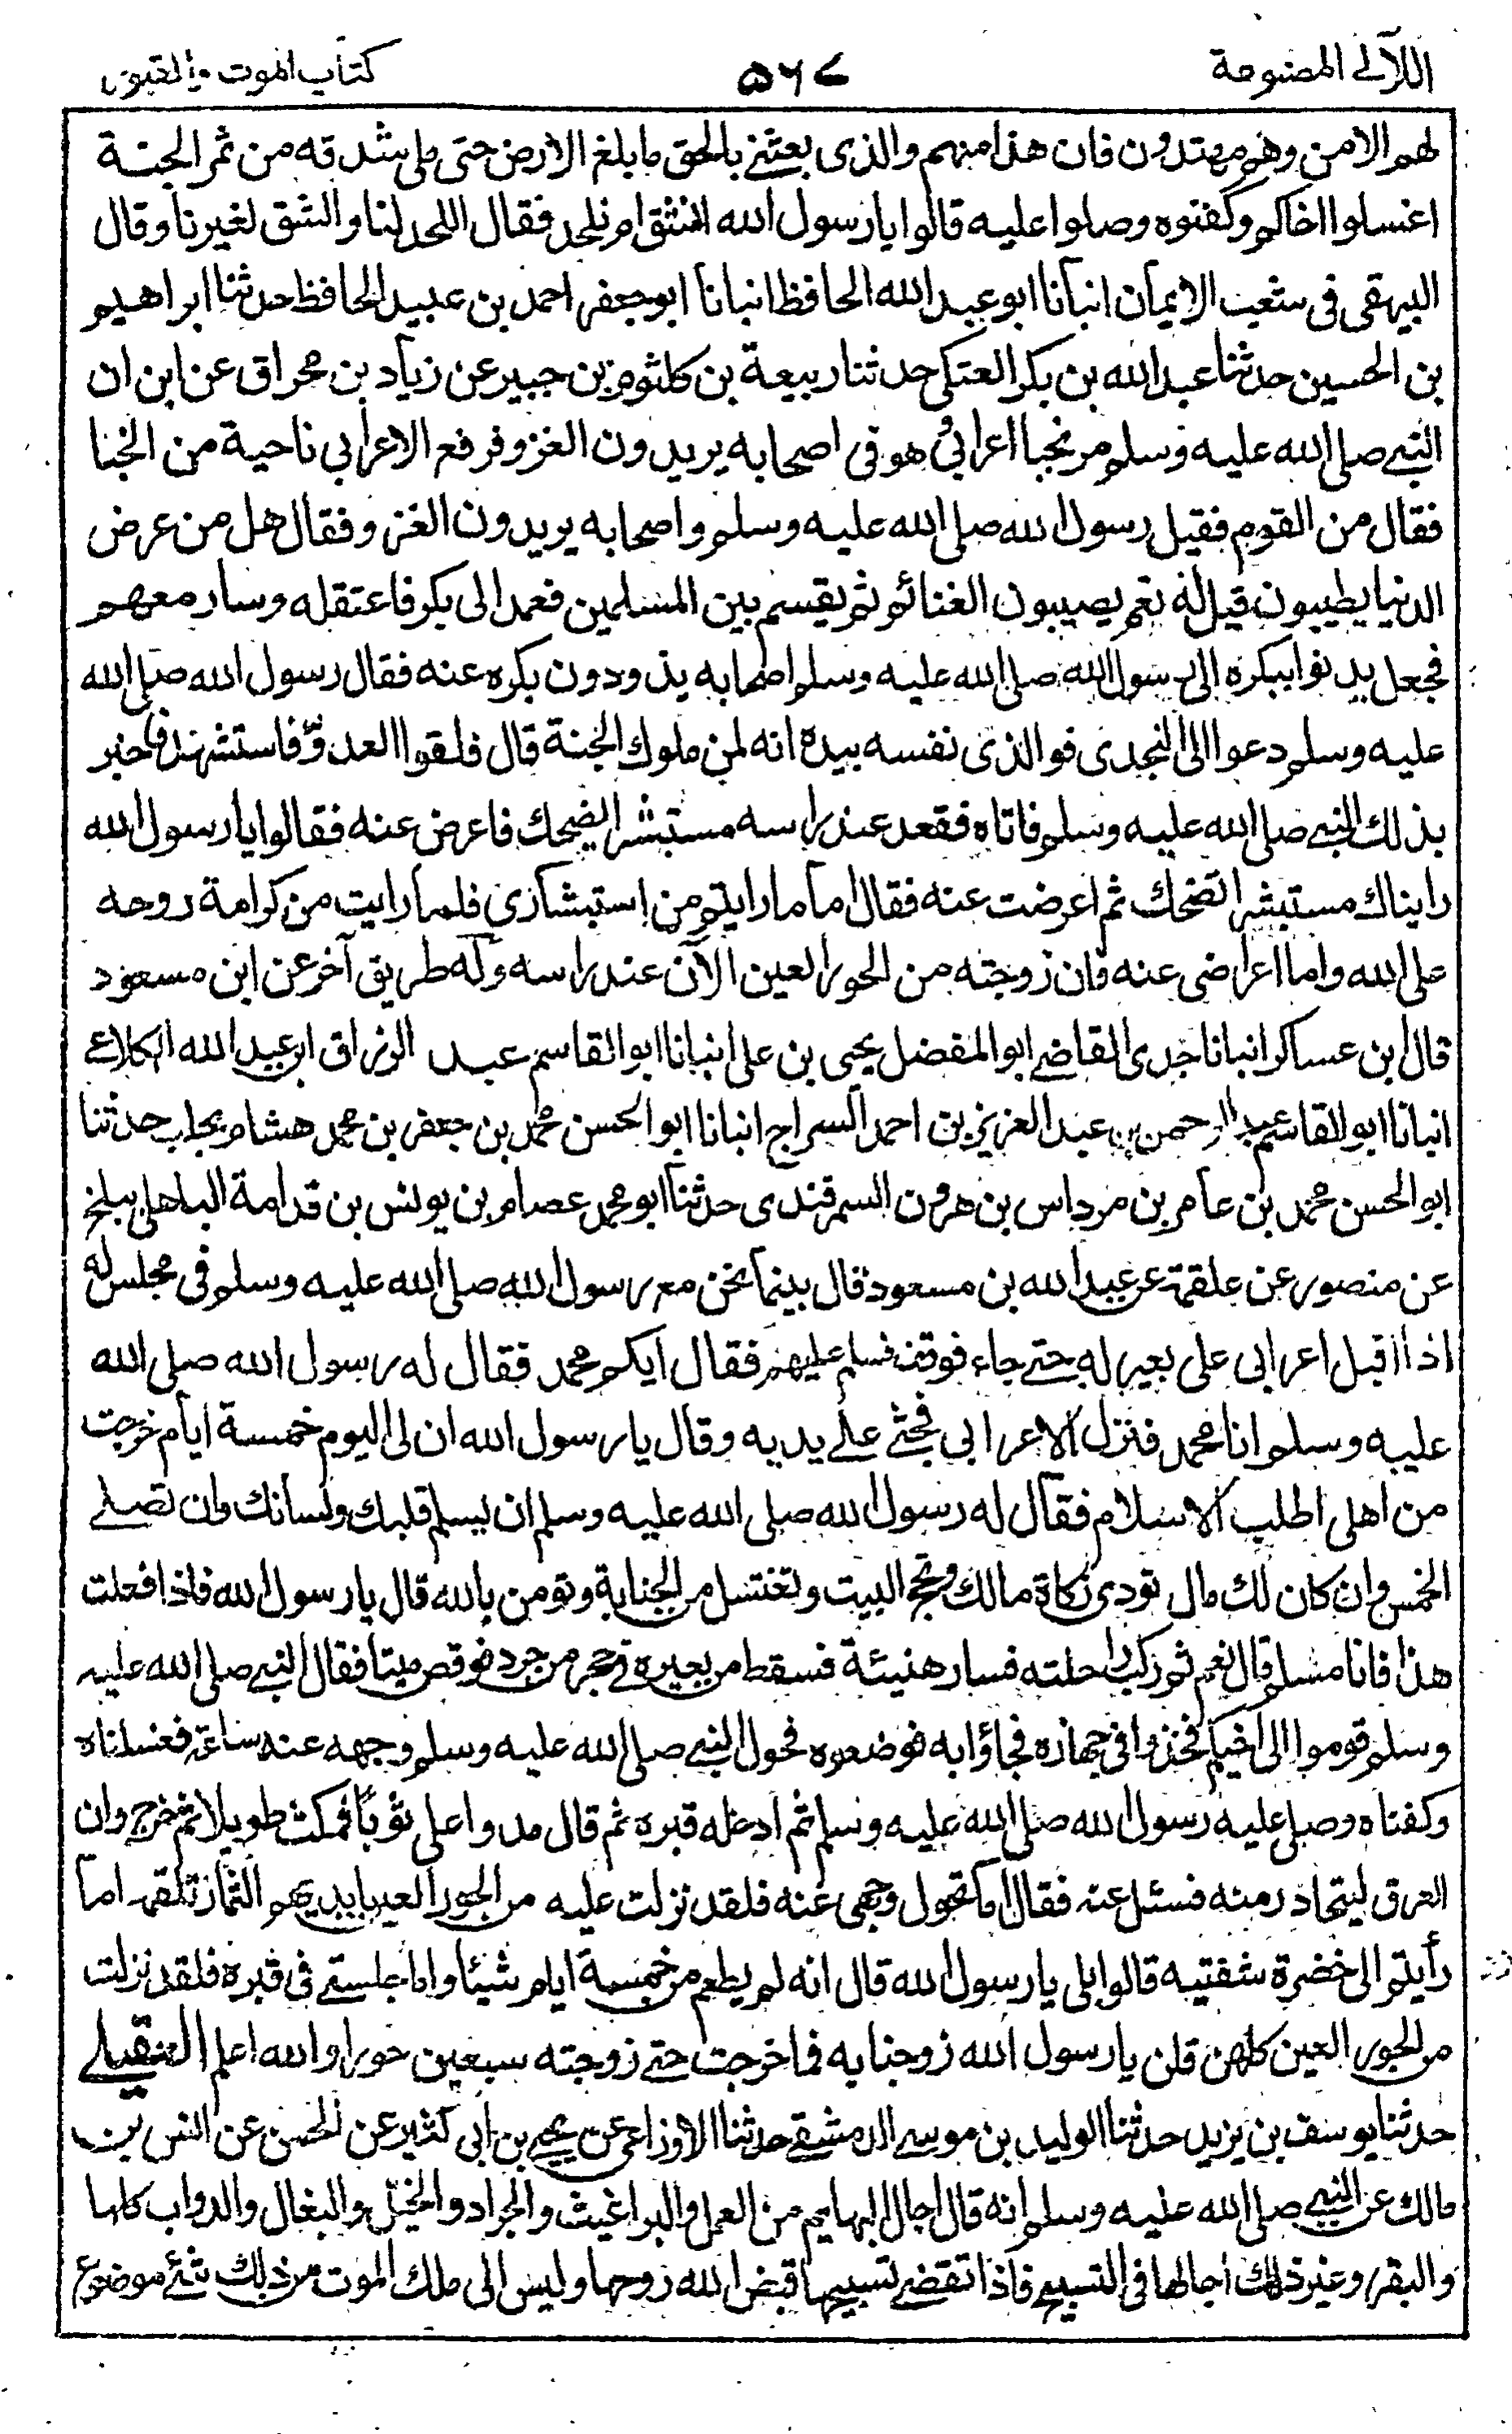 اللآلے المصنوعة ۵۶۷ كتاب الموت والقبور
لهم الامن وهم مهتدون فان هذا منهم والذى بعثنے بالحق ما بلغ الارض حتى ملى شدقه من ثمر الجنة
اغسلوا اخاكم وكفنوه وصلوا عليه قالوا يا رسول الله انشق ام نلحد فقال اللحد لنا والشق لغيرنا وقال
البيهقى فى شعب الايمان انبأنا ابو عبد الله الحافظ انبانا ابو جعفر احمد بن عبيد الحافظ حدثنا ابراهيم
بن الحسين حدثنا عبد الله بن بكر العتكى حدثنا ربيعة بن كلثوم بن جبير عن زياد بن محراق عن ابن ان
النبے صلى الله عليه وسلم مر بخبا اعرابي هو فى اصحابه يريدون الغزو فرفع الاعرابى ناحية من الخبا
فقال من القوم فقيل رسول الله صلى الله عليه وسلم واصحابه يريدون الغزو فقال هل من عرض
الدنيا يطيبون قيل له نعم يصيبون الغنائم ثم يقسم بين المسلمين فعمد الى بكر فاعتقله وسار معهم
فجعل يدنو ببكره الى رسول الله صلى الله عليه وسلم اصحابه يذودون بكره عنه فقال رسول الله صلى الله
عليه وسلم دعوا الى النجدى فو الذى نفسه بيده انه لمن ملوك الجنة قال فلقوا العدو فاستشهد فاخبر
بذلك النبے صلى الله عليه وسلم فاتاه فقعد عند راسه مستبشرا يضحك فاعرض عنه فقالوا يا رسول الله
رايناك مستبشرا تضحك ثم اعرضت عنه فقال اما ما رايتم من استبشارى فلما رايت من كرامة روحه
على الله واما اعراضى عنه فان زوجته من الحور العين الآن عند راسه وله طريق آخر عن ابن مسعود
قال ابن عساكر انبانا جدى القاضے ابو المفضل يحيى بن على انبانا ابو القاسم عبد الرزاق ابن عبيد الله الكلاعے
انبانا ابو القاسم عبد الرحمن بن عبد العزيز بن احمد السراج انبانا ابو الحسن محمد بن جعفر بن محمد هشام بحلب حدثنا
ابو الحسن محمد بن عامر بن مرداس بن هرون السمرقندى حدثنا ابو محمد عصام بن يونس بن قدامة الباهلى ببلخ
عن منصور عن علقمة عن عبد الله بن مسعود قال بينما نحن مع رسول الله صلى الله عليه وسلم فى مجلس له
اذ اقبل اعرابى على بعير له حتے جاء فوقف فسلم عليهم فقال ايكم محمد فقال له رسول الله صلى الله
عليه وسلم انا محمد فنزل الاعرابى فجثے علے يديه وقال يا رسول الله ان لى اليوم خمسة ايام خرجت
من اهلى اطلب الاسلام فقال له رسول الله صلى الله عليه وسلم ان يسلم قلبك ولسانك وان تصلے
الخمس وان كان لك مال تودى زكاة مالك وتحج البيت وتغتسل من الجنابة وتومن بالله قال يا رسول الله فاذا فعلت
هذا فانا مسلم قال نعم ثم ركب راحلته فسار هنيئة فسقط من بعيره فى حجر من جرد فوقص ميتا فقال النبے صلى الله عليه
وسلم قوموا الى اخيكم فخذوا فى جهازه فجاؤا به فوضعوه فحول النبے صلى الله عليه وسلم وجهه عنه ساعة فغسلناه
وكفناه وصلى عليه رسول الله صلى الله عليه وسلم ثم ادخله قبره ثم قال مدوا على ثوبا فمكث طويلا ثم خرج وان
العرق ليتحادر منه فسئل عنه فقال اما تحول وجهى عنه فلقد نزلت عليه من الحور العين بايديهم الثمار تلقمه اما
رأيتم الى خضرة شفتيه قالوا بلى يا رسول الله قال انه لم يطعم من خمسة ايام شيئا واما جلستے فى قبره فلقد نزلت
من الحور العين كلهن قلن يا رسول الله زوجنا به فما خرجت حتے زوجته سبعين حورا والله اعلم العقيلے
حدثنا يوسف بن يزيد حدثنا الوليد بن موسے الدمشقے حدثنا الاوزاعى عن يحيے بن ابى كثير عن الحسن عن انس بن
مالك عن النبے صلى الله عليه وسلم انه قال اجال البهايم من العمل والبراغيث والجراد والخيل والبغال والدواب كلها
والبقر وغير ذلك اجالها فى التسبيح فاذا تقضے تسبيحها قبض الله روحها وليس الى ملك الموت من ذلك شئے موضوع